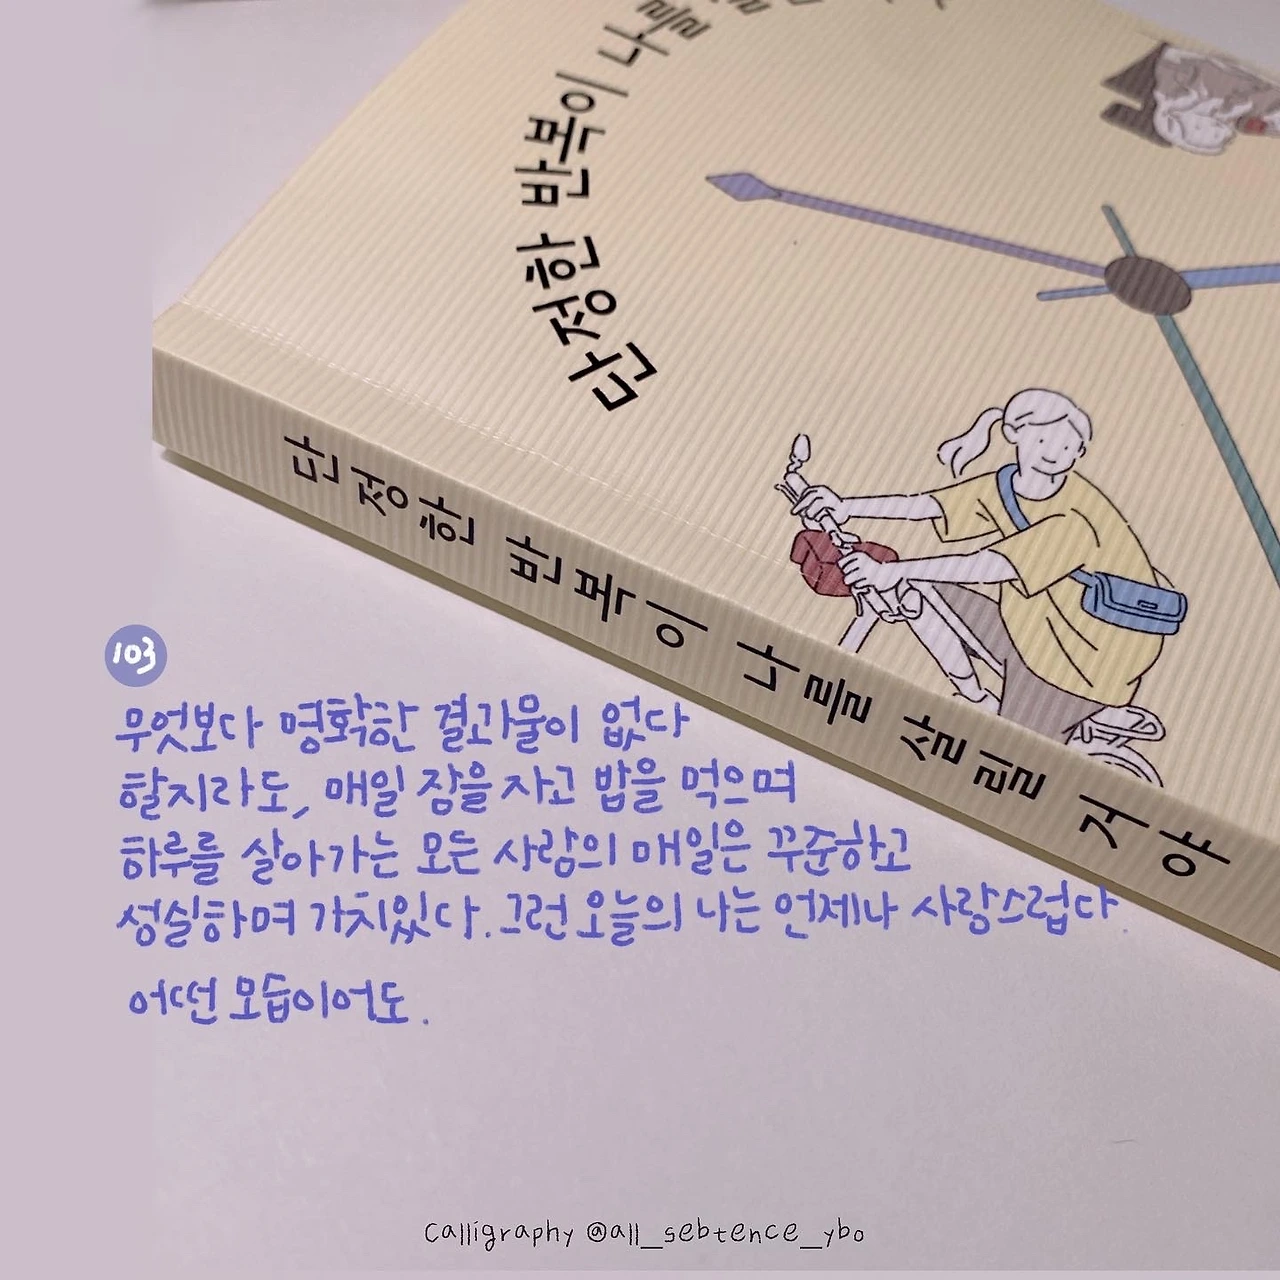 단정한 반복이 나를
단정한 반복이 나를 살릴 거야
103
무엇보다 명확한 결과물이 없다
할지라도, 매일 잠을 자고 밥을 먹으며
하루를 살아가는 모든 사람의 매일은 꾸준하고
성실하며 가치있다. 그런 오늘의 나는 언제나 사랑스럽다.
어떤 모습이어도.
Calligraphy @all_sebtence_ybo